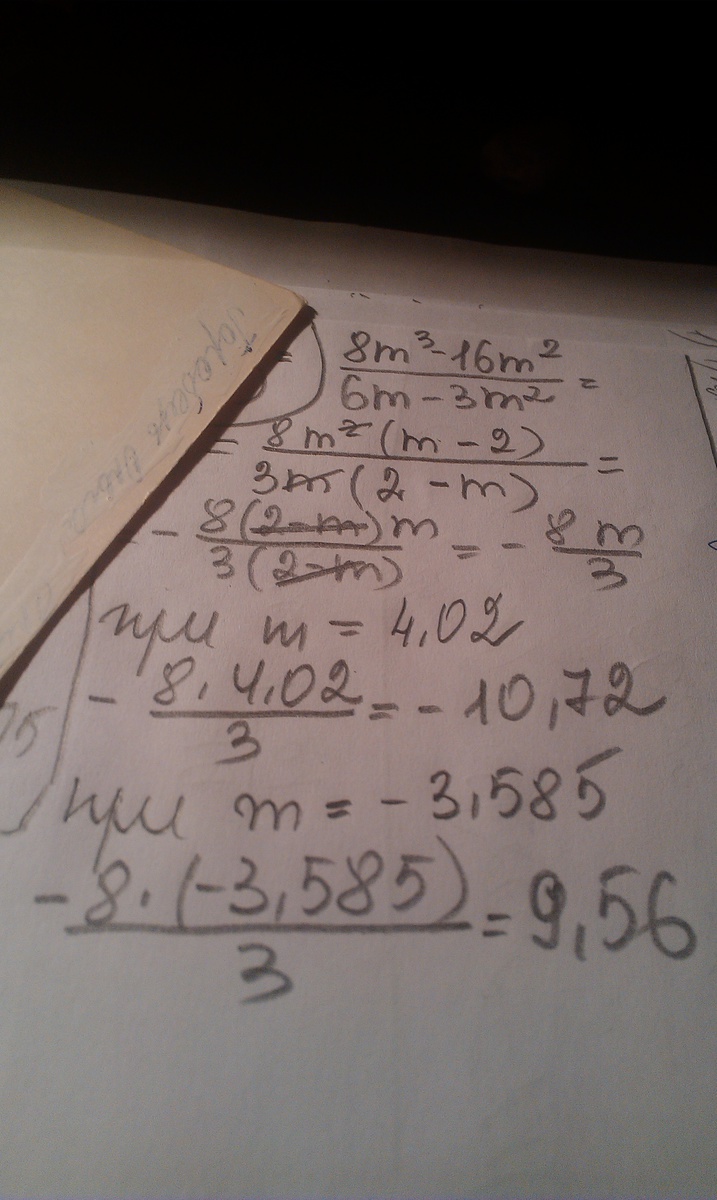 = \frac{8m^3 - 16m^2}{6m - 3m^2} =
= \frac{8m^2(m - 2)}{3m(2 - m)} =
- \frac{8(2 - m)m}{3(2 - m)} = - \frac{8m}{3}
при m = 4,02
- \frac{8 \cdot 4,02}{3} = - 10,72
при m = - 3,585
- \frac{8 \cdot (-3,585)}{3} = 9,56